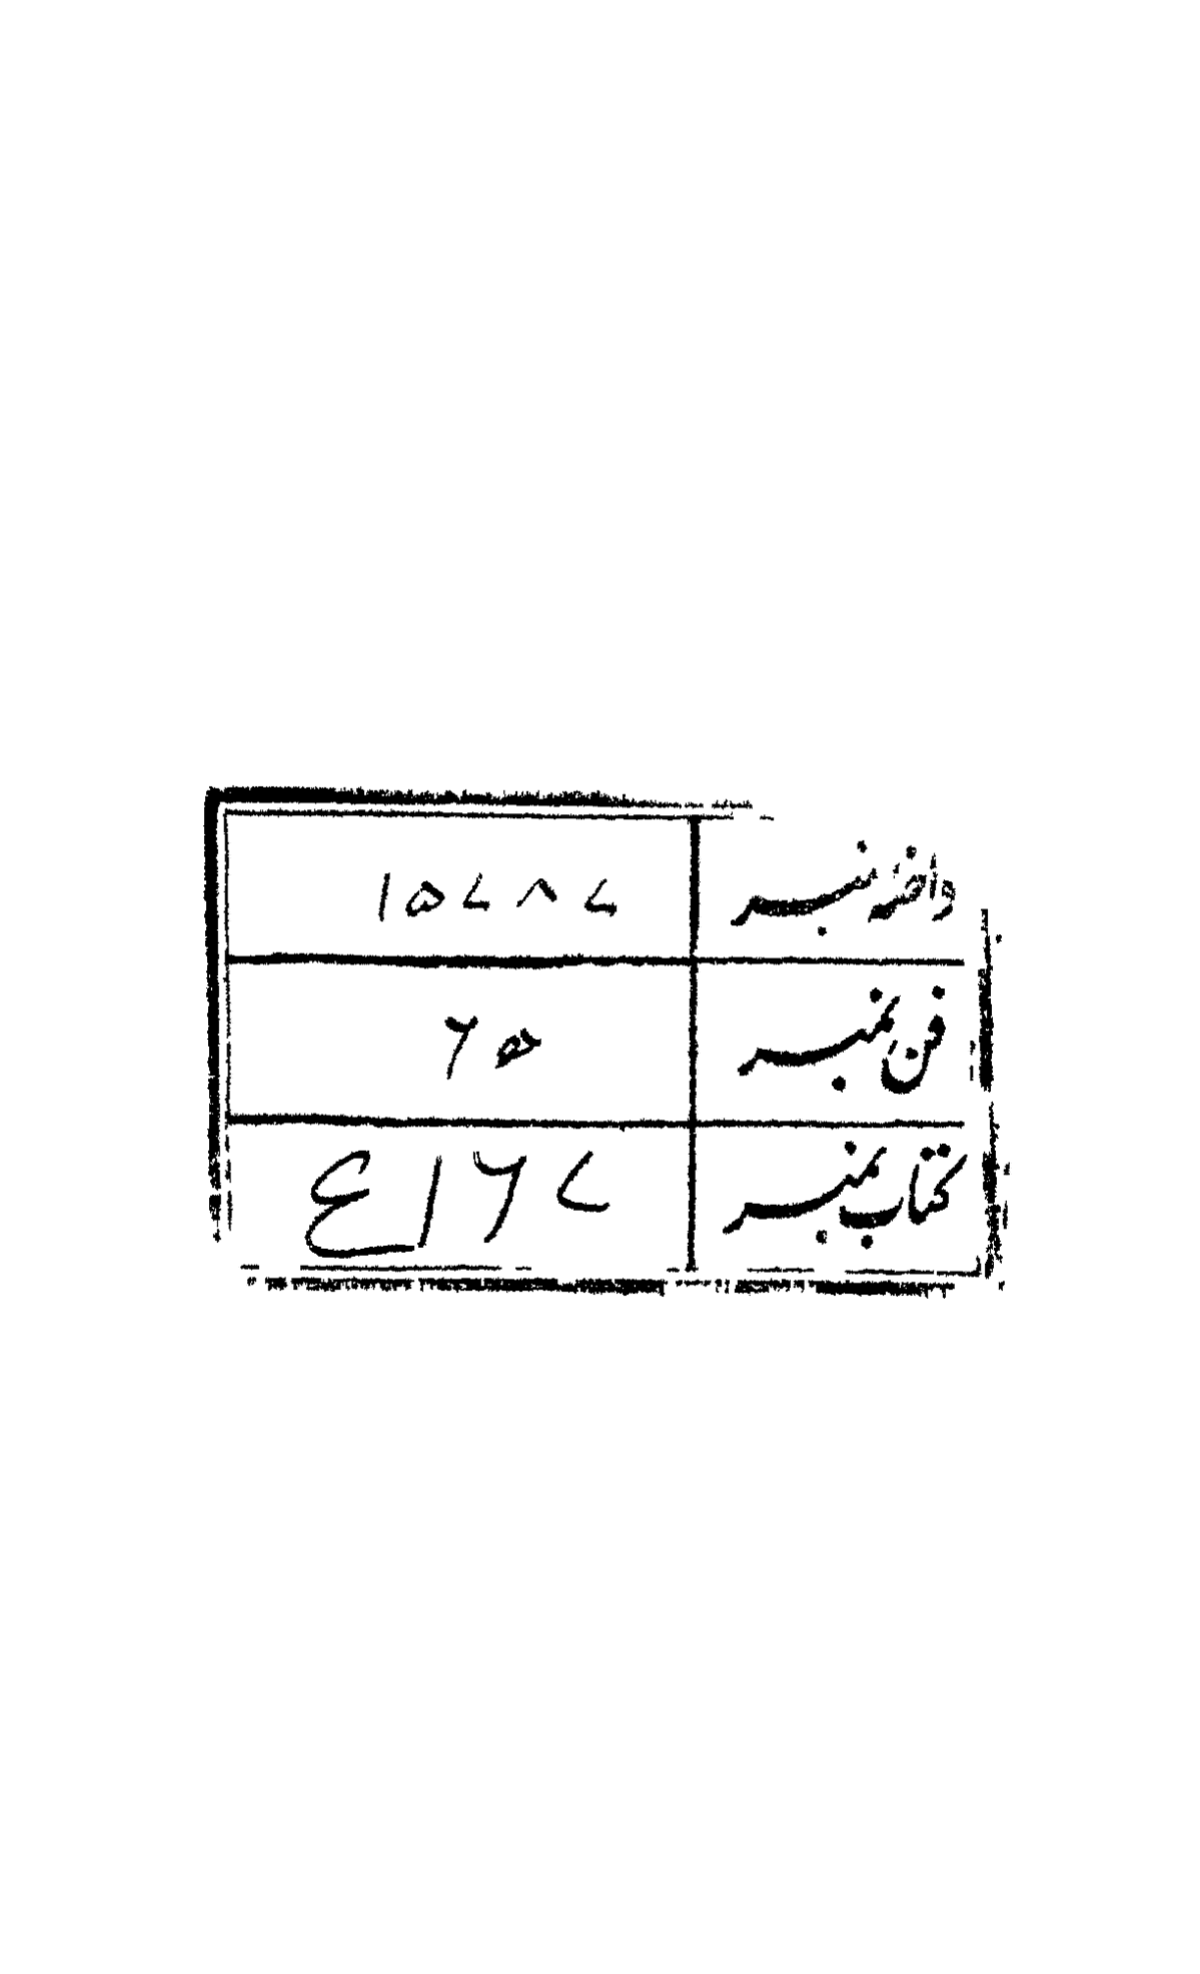 داخلہ نمبر ۱۵۷۸۷
فن نمبر ۶۵
کتاب نمبر ع ۱۶۷